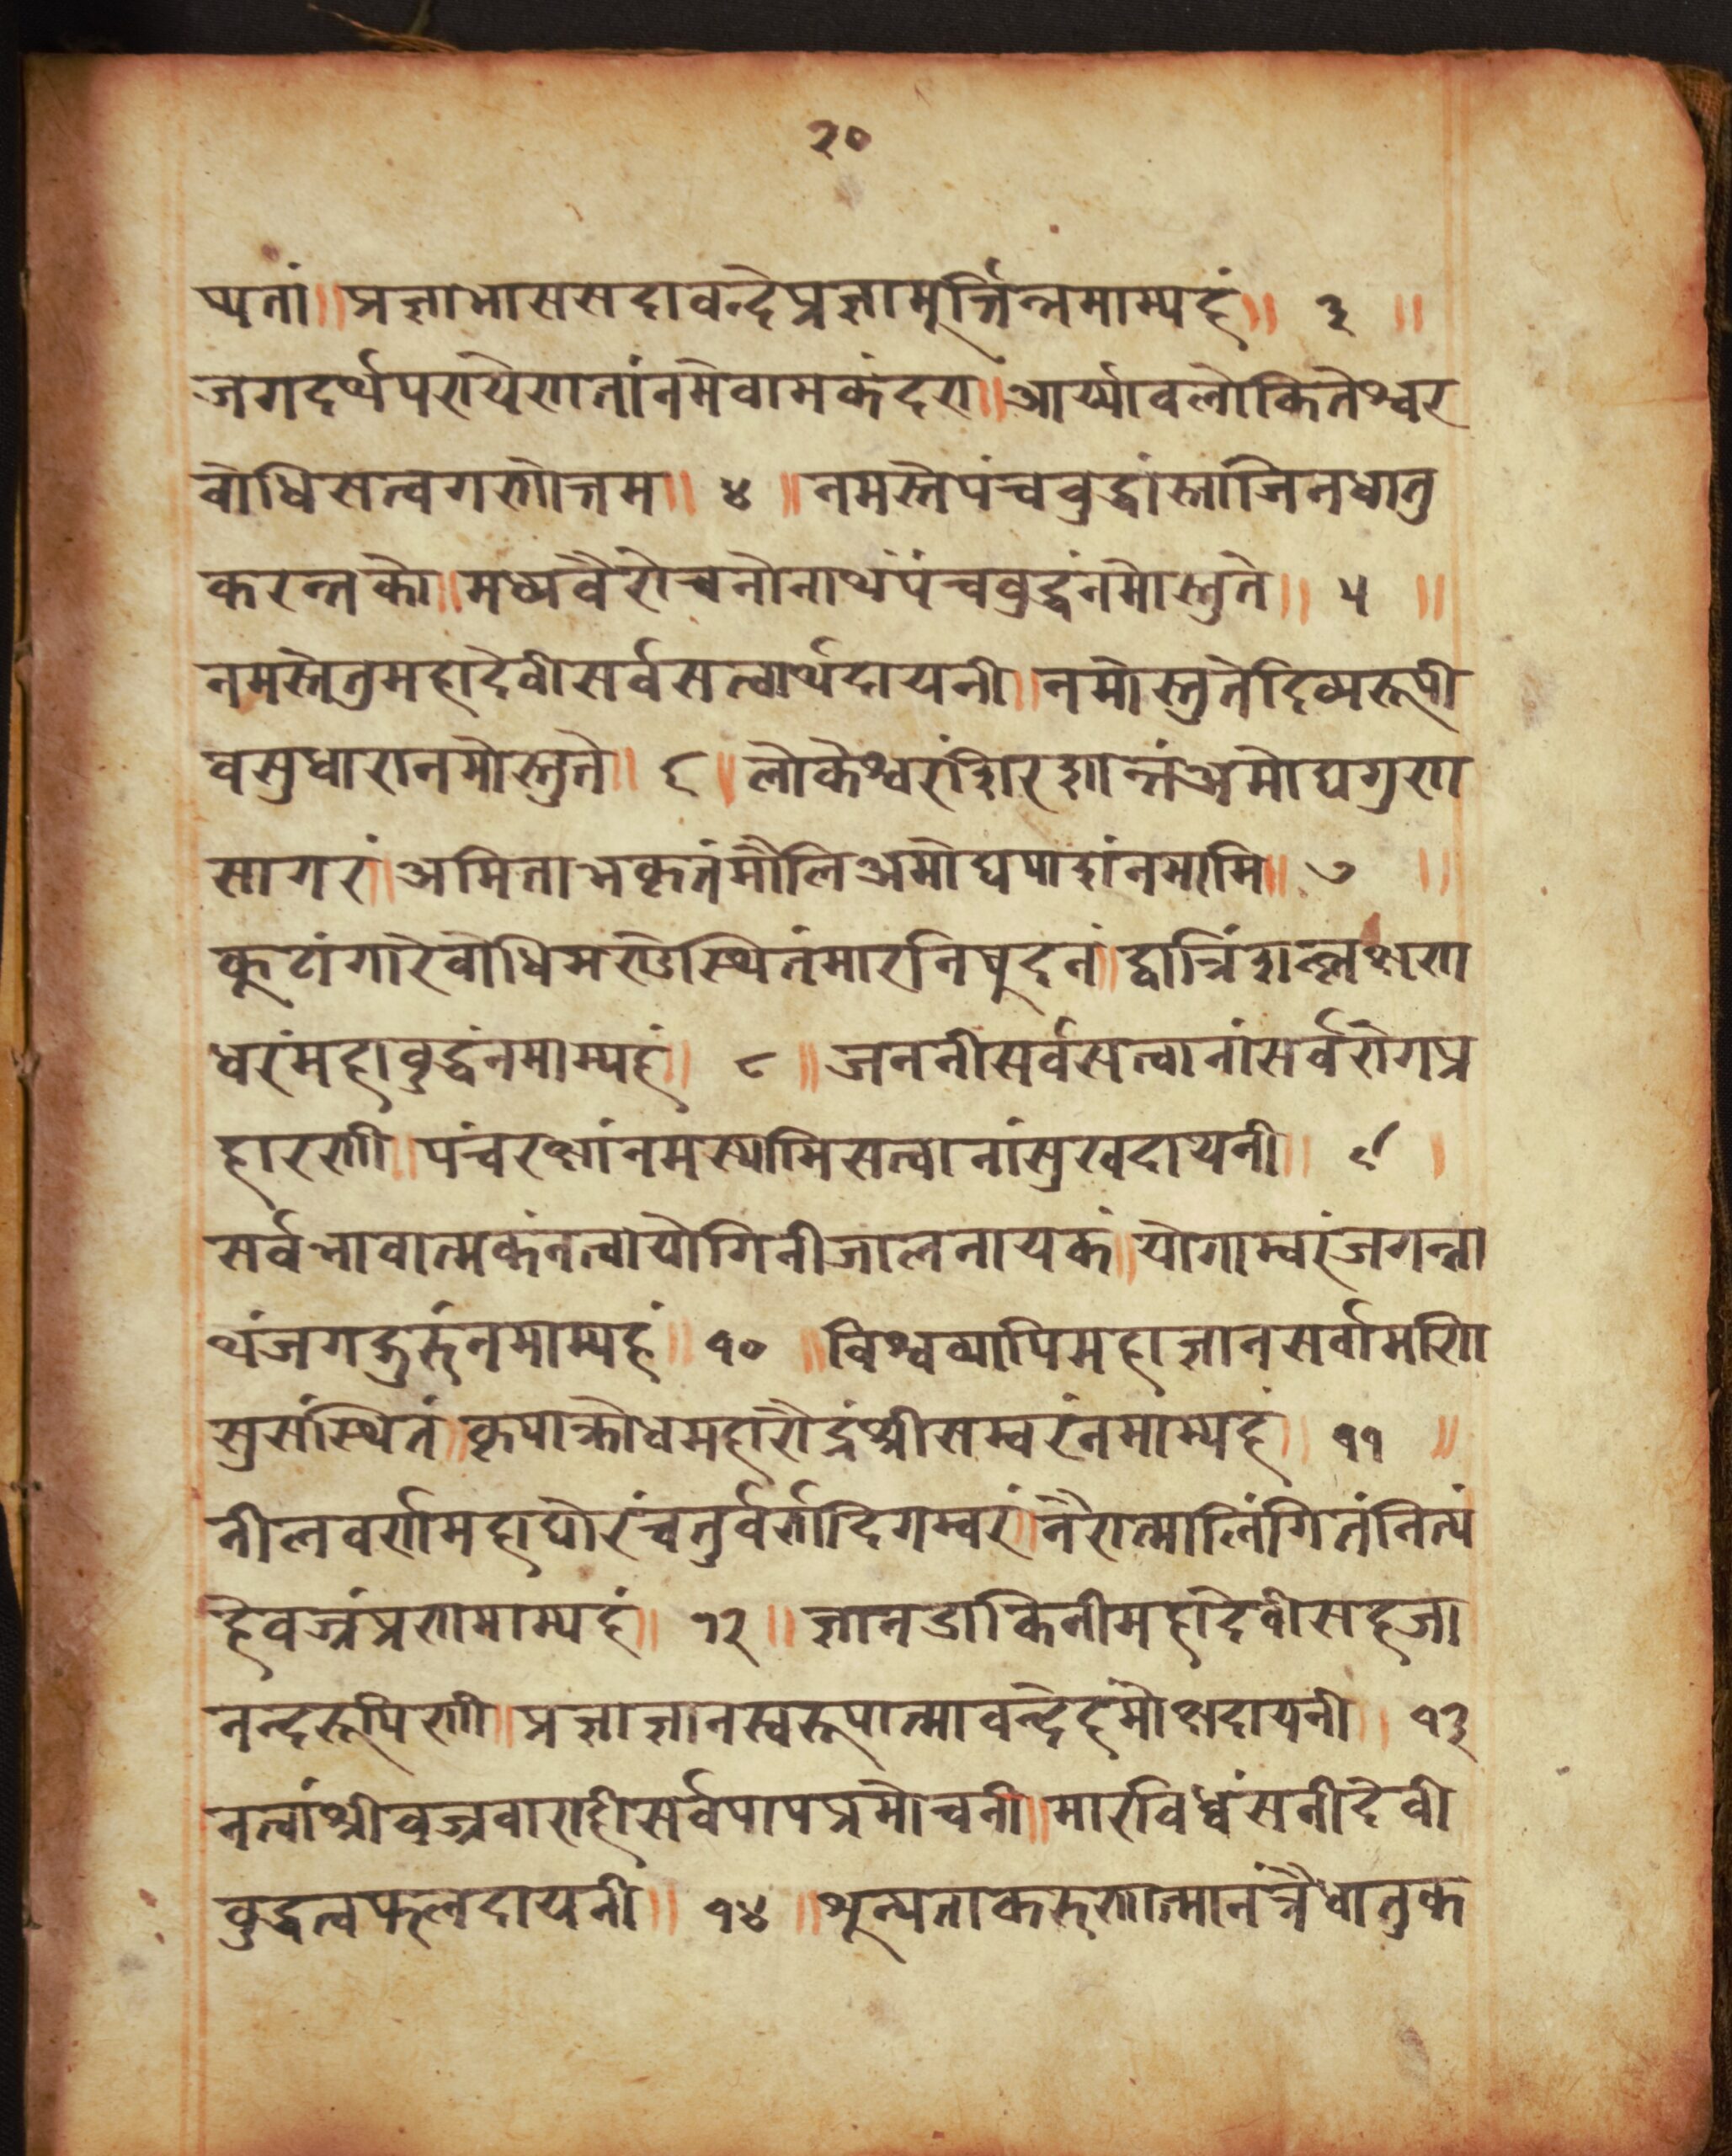 २०
प्यतां ॥ प्रज्ञाभाससदावन्देप्रज्ञामुर्त्तिन्नमाम्यहं ॥ ३ ॥
जगदर्थपरायेणतांनमेवामकंदरा ॥ आर्य्यावलोकितेश्वर
वोधिसत्वगणोत्तम ॥ ४ ॥ नमस्तेपंचवुद्धांस्तांजिनधातु
करन्तको ॥ मध्यवैरोचनोनाथंपंचवुद्धंनमोस्तुते ॥ ५ ॥
नमस्तेतुमहादेवीसर्वसत्वार्थदायनी ॥ नमोस्तुतेदिव्यरूपी
वसुधारानमोस्तुते ॥ ६ ॥ लोकेश्वरंशिरशान्तंअमोघगुण
सागरं ॥ अमिताभकृतंमौलिअमोघपाशंनमामि ॥ ७ ॥
कूटांगारेवोधिमण्डेस्थितंमारनिषुदनं ॥ द्वात्रिंशल्लक्षण
धरंमहावुद्धंनमाम्यहं ॥ ८ ॥ जननीसर्वसत्वानांसर्वरोगप्र
हारणी ॥ पंचरक्षांनमस्यामिसत्वानांसुखदायनी ॥ ९ ॥
सर्वभावात्मकंनत्वायोगिनीजालनायकं ॥ योगाम्वरंजगन्ना
थंजगद्गुरुंनमाम्यहं ॥ १० ॥ विश्वव्यापिमहाज्ञानसर्वामणि
सुसंस्थितं ॥ कृपाक्रोधमहारौद्रंश्रीसम्वरंनमाम्यहं ॥ ११ ॥
नीलवर्णमहाघोरंचतुर्वर्णदिगम्वरं ॥ नैरात्मालिंगितंनित्यं
हेवज्रंप्रणमाम्यहं ॥ १२ ॥ ज्ञानडाकिनीमहादेवीसहजा
नन्दरूपिणी ॥ प्रज्ञाज्ञानस्वरूपात्मावन्देहंमोक्षदायनी ॥ १३
नत्वांश्रीवज्रवाराहीसर्वपापप्रमोचनी ॥ मारविध्वंसनीदेवी
वुद्धत्वफलदायनी ॥ १४ ॥ शून्यताकरुणात्मानंत्रैधातुक